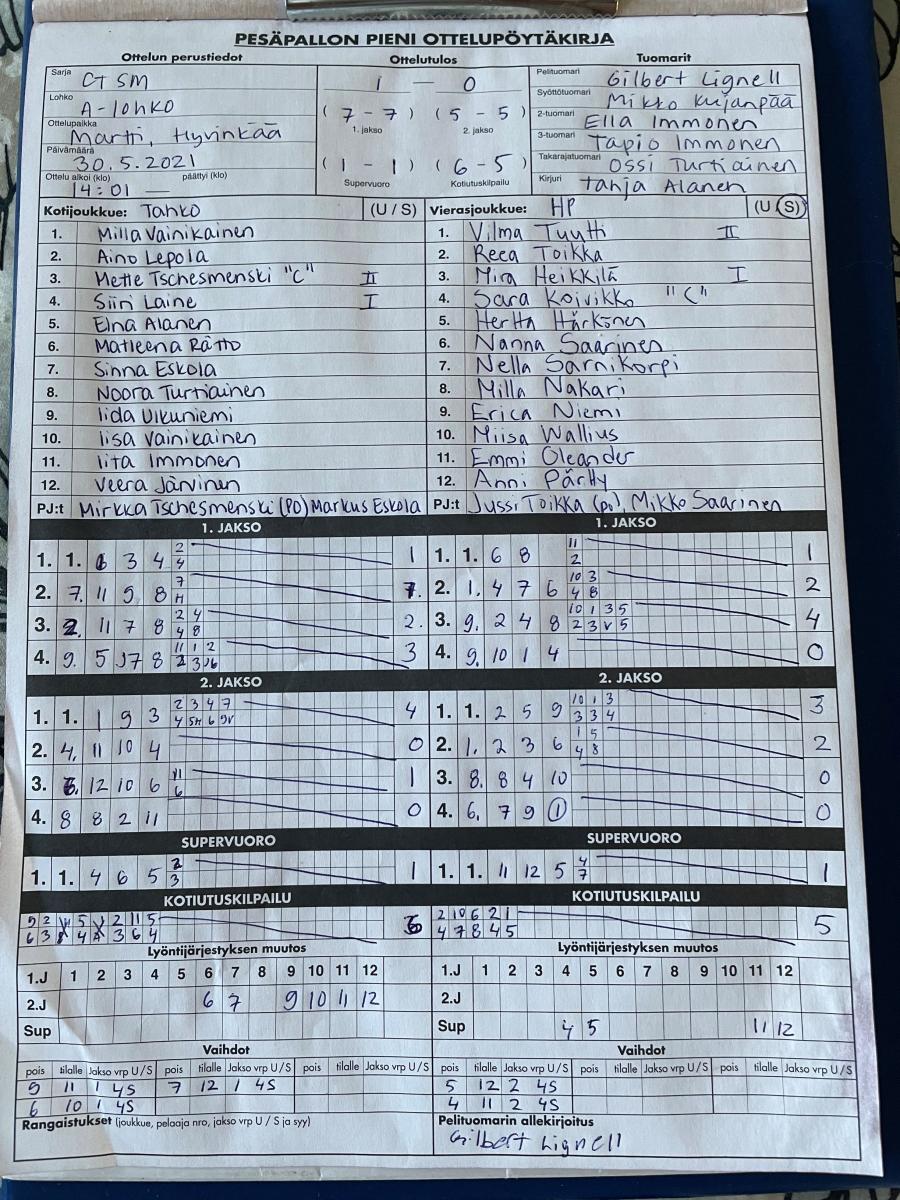 PESÄPALLON PIENI OTTELUPÖYTÄKIRJA
Ottelun perustiedot Ottelutulos Tuomarit
Sarja CT SM
Lohko A-lohko
Ottelupaikka Martti, Hyvinkää
Päivämäärä 30.5.2021
Ottelu alkoi (klo) 14:01 — päättyi (klo)
1 — 0
( 7 - 7 ) ( 5 - 5 )
1. jakso 2. jakso
( 1 - 1 ) ( 6 - 5 )
Supervuoro Kotiutuskilpailu
Pelituomari Gilbert Lignell
Syöttötuomari Mikko Kujanpää
2-tuomari Ella Immonen
3-tuomari Tapio Immonen
Takarajatuomari Ossi Turtiainen
Kirjuri Tanja Alanen
Kotijoukkue: Tahko (U / S)
1. Milla Vainikainen
2. Aino Lepola
3. Mette Tschesmenski "C" II
4. Siiri Laine I
5. Elna Alanen
6. Matleena Rätto
7. Sinna Eskola
8. Noora Turtiainen
9. Iida Ulkuniemi
10. Iisa Vainikainen
11. Iita Immonen
12. Veera Järvinen
PJ:t Mirkka Tschesmenski (PO) Markus Eskola
Vierasjoukkue: HP (U / S)
1. Vilma Tuytti II
2. Reea Toikka
3. Mira Heikkilä I
4. Sara Koivikko "C"
5. Hertta Härkönen
6. Nanna Saarinen
7. Nella Sarnikorpi
8. Milla Nakari
9. Erica Niemi
10. Miisa Wallius
11. Emmi Oleander
12. Anni Pärtty
PJ:t Jussi Toikka (po), Mikko Saarinen
1. JAKSO
1. 1. 6 3 4 2 4 1
2. 7. 11 9 8 7 H 1.
3. 2. 11 7 8 2 4 4 8 2.
4. 9. 5 J7 8 11 1 2 2 3 J6 3
1. JAKSO
1. 1. 6 8 11 2 1
2. 1. 4 7 6 10 3 4 8 2
3. 9. 2 4 8 10 1 3 5 2 3 V 5 4
4. 9. 10 1 4 0
2. JAKSO
1. 1. 1 9 3 2 3 4 7 4 5H 6 9V 4
2. 4. 11 10 4 0
3. 6. 12 10 6 11 6 1
4. 8 8 2 11 0
2. JAKSO
1. 1. 2 5 9 10 1 3 3 3 4 3
2. 1. 2 3 6 1 5 4 8 2
3. 8. 8 4 10 0
4. 6. 7 9 1 0
SUPERVUORO
1. 1. 4 6 5 2 3 1
SUPERVUORO
1. 1. 11 12 5 4 7 1
KOTIUTUSKILPAILU
5 2 5 2 11 5
6 3 4 3 6 4 6
KOTIUTUSKILPAILU
2 10 6 2 1
4 7 8 4 5 5
Lyöntijärjestyksen muutos
1.J 1 2 3 4 5 6 7 8 9 10 11 12
2.J 6 7 9 10 11 12
Sup
Lyöntijärjestyksen muutos
1.J 1 2 3 4 5 6 7 8 9 10 11 12
2.J
Sup 4 5 11 12
Vaihdot
pois tilalle Jakso vrp U / S pois tilalle Jakso vrp U / S pois tilalle Jakso vrp U / S
9 11 1 4S 7 12 1 4S
6 10 1 4S
Vaihdot
pois tilalle Jakso vrp U / S pois tilalle Jakso vrp U / S pois tilalle Jakso vrp U / S
5 12 2 4S
4 11 2 4S
Rangaistukset (joukkue, pelaaja nro, jakso vrp U / S ja syy)
Pelituomarin allekirjoitus
Gilbert Lignell